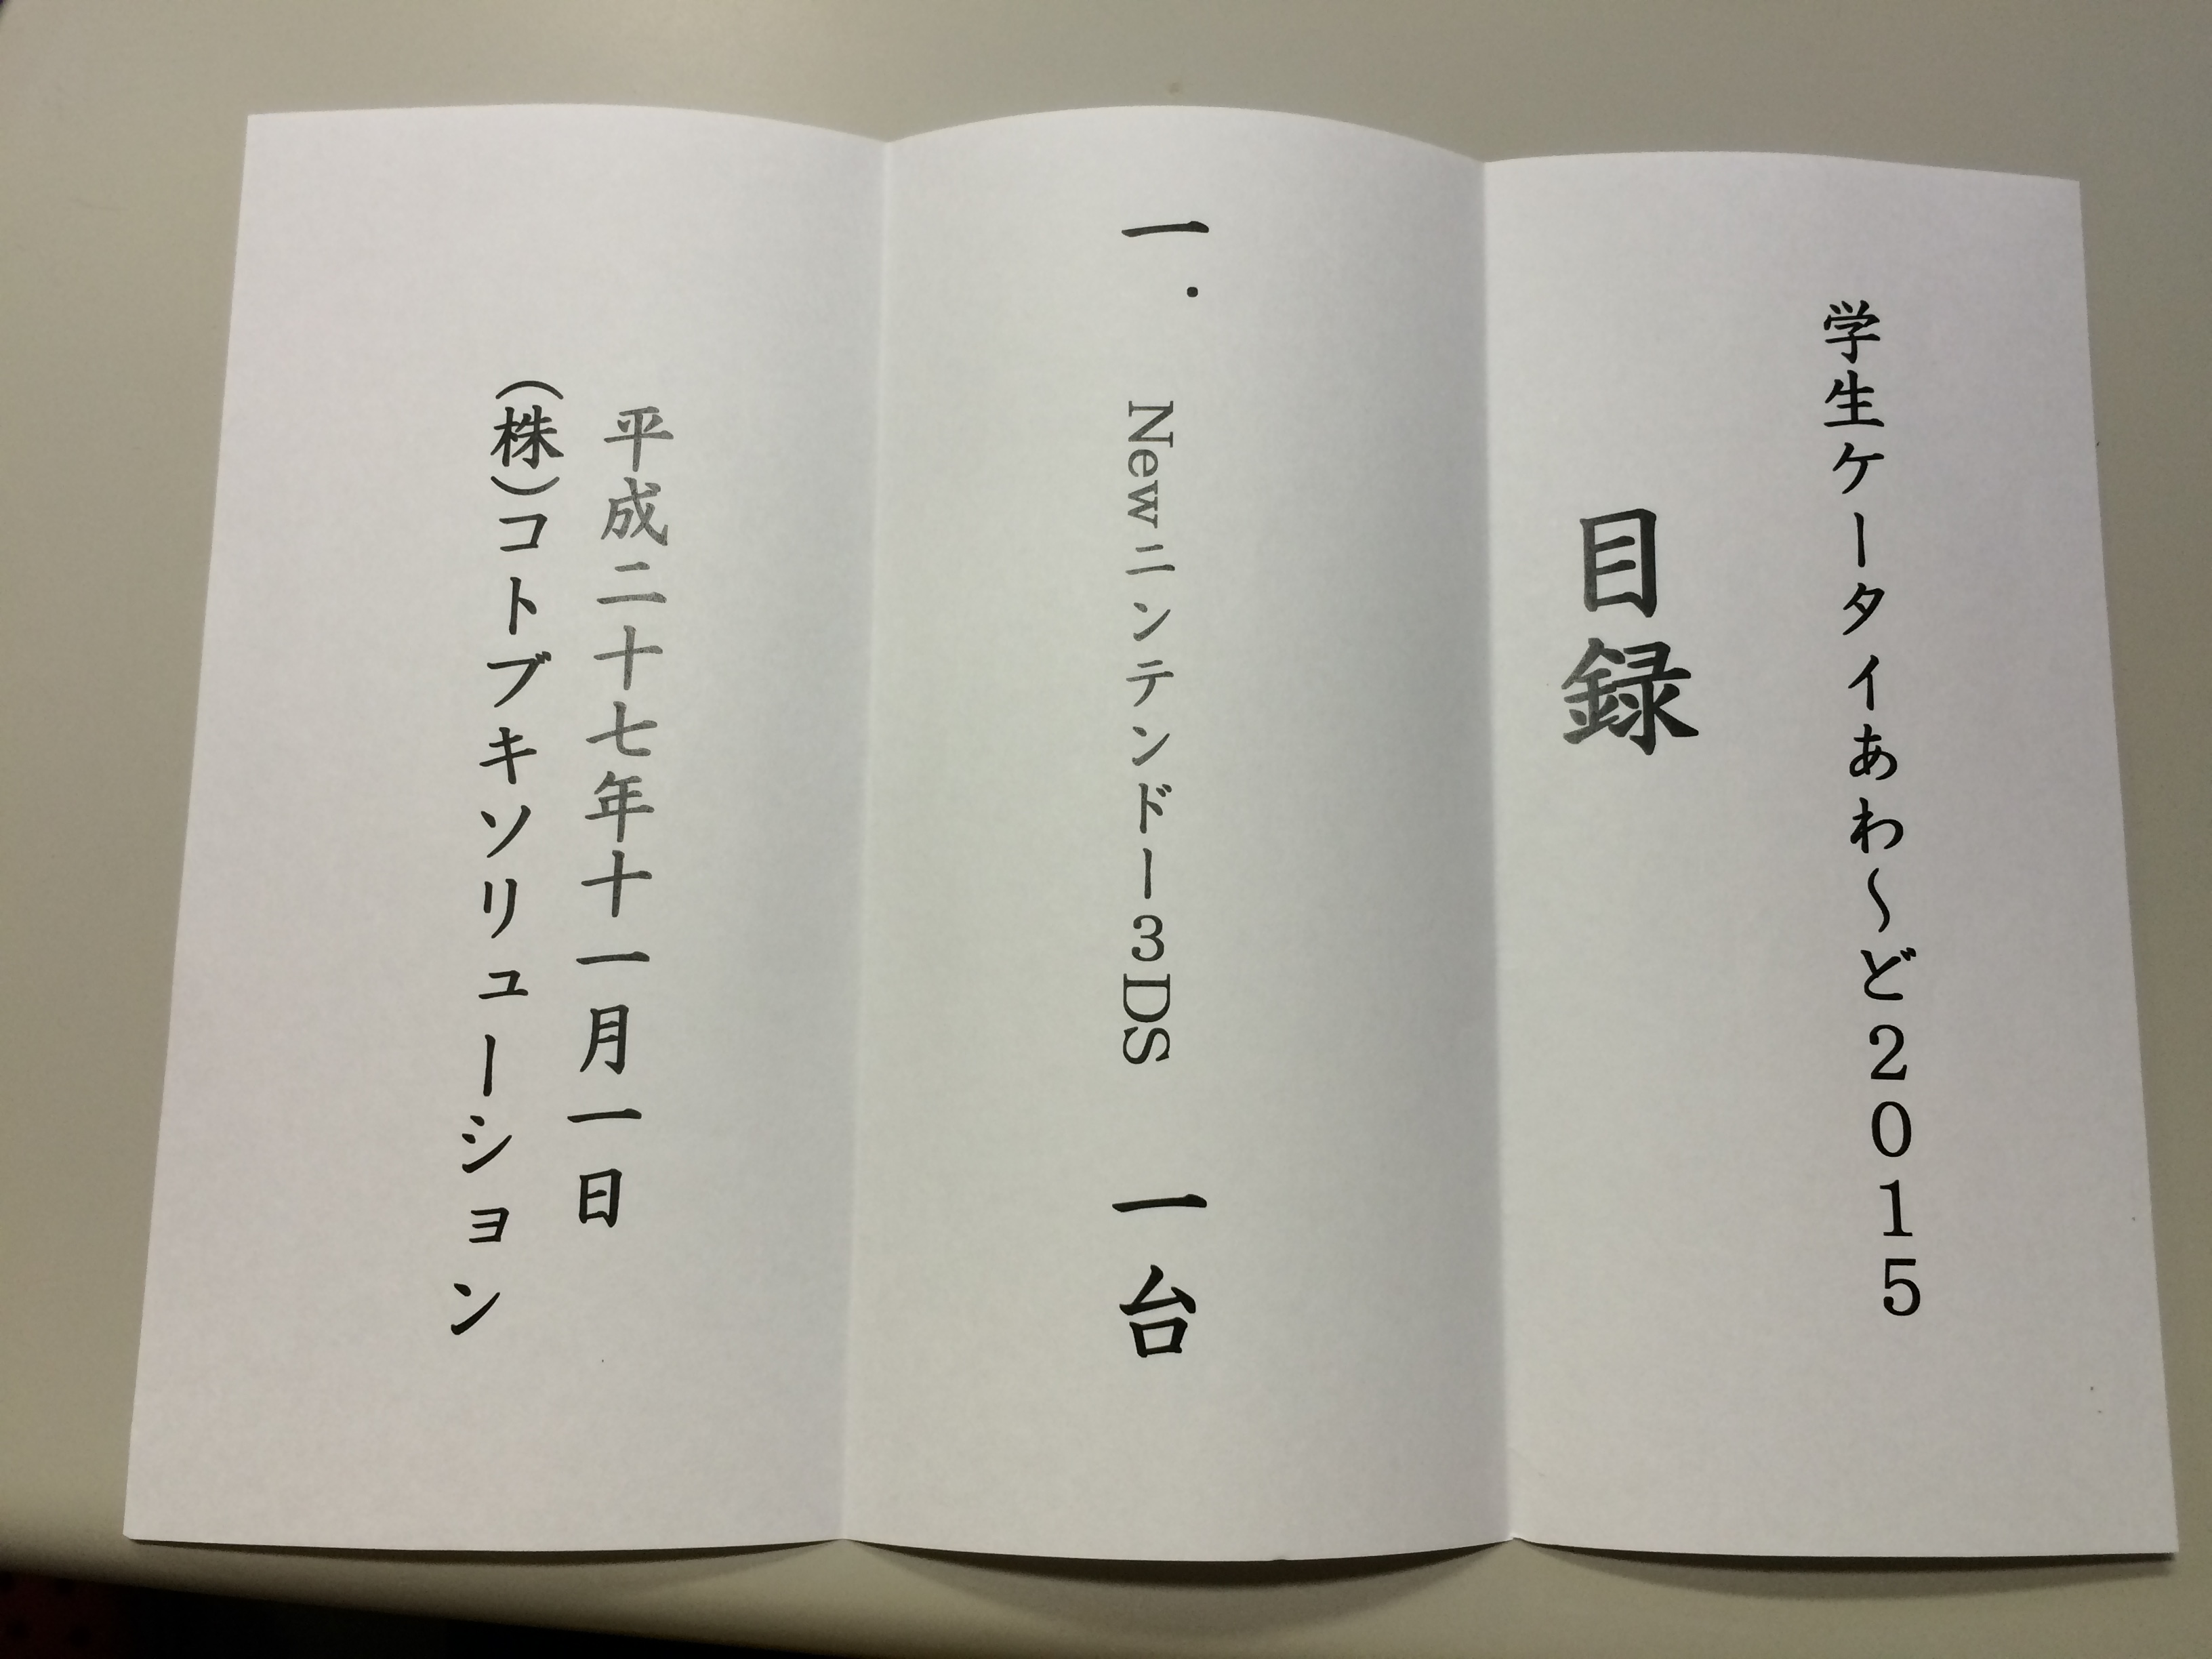 学生ケータイあわ～ど２０１５
目録
一． Newニンテンドー３DS 一台
平成二十七年十一月一日
(株)コトブキソリューション